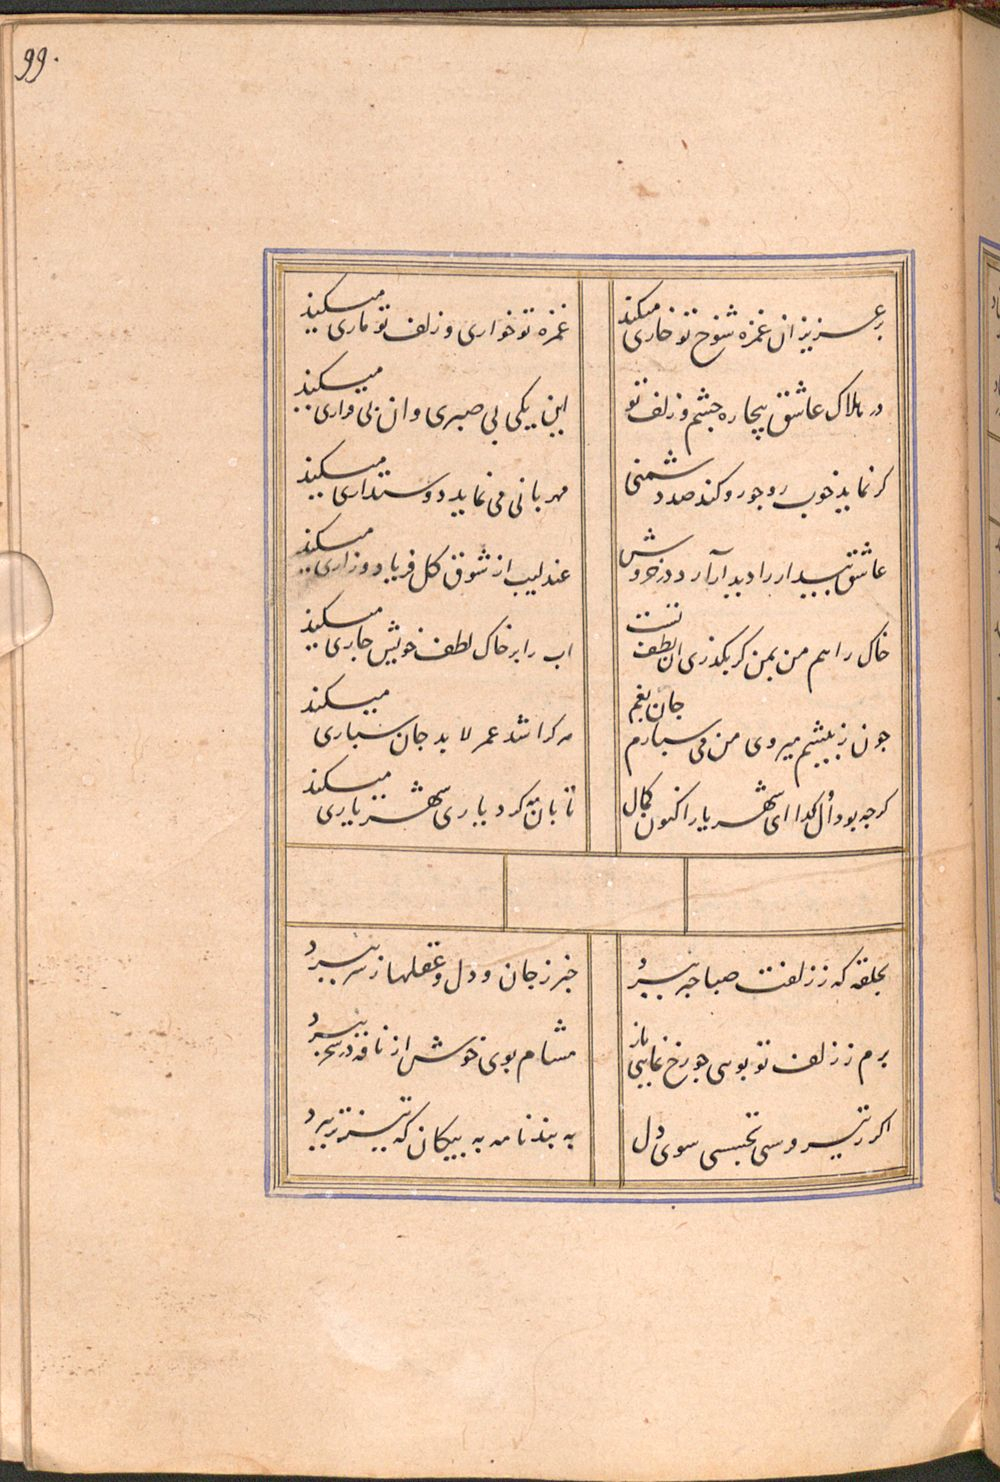 99.
بر عزیزان غمزه شوخ تو خاری میکند
غمزه تو خواری و زلف تو ماری میکند
در هلاک عاشق بیچاره چشم و زلف تو
این یکی بی صبری و ان بی واری میکند
کر نماید خوب رو جور و کند صد دشمنی
مهربانی می نماید دوستداری میکند
عاشق بیدار را دیدار آرد در خروش
عندلیب از شوق کل فریاد و زاری میکند
خاک راهم من بمن کر بکذری ان لطف تست
اب را بر خاک لطف خویش جاری میکند
جون ز پیشم میروی من می سپارم جان بغم
هر کرا شد عمر لا بد جان سپاری میکند
کرجه بود اول کدا ای شهریار اکنون کمال
تا بان مه کرد یاری شهریاری میکند
بحلقه که ز زلفت صبا خبر ببرد
خبر ز جان و دل و عقلها ز سر ببرد
برم ز زلف تو بوسی جو رخ نمایی باز
مشام بوی خوش از نافه در سحر ببرد
اکر تیر و سی تحسی سوی دل
به بند نامه به پیکان که تیزتر ببرد